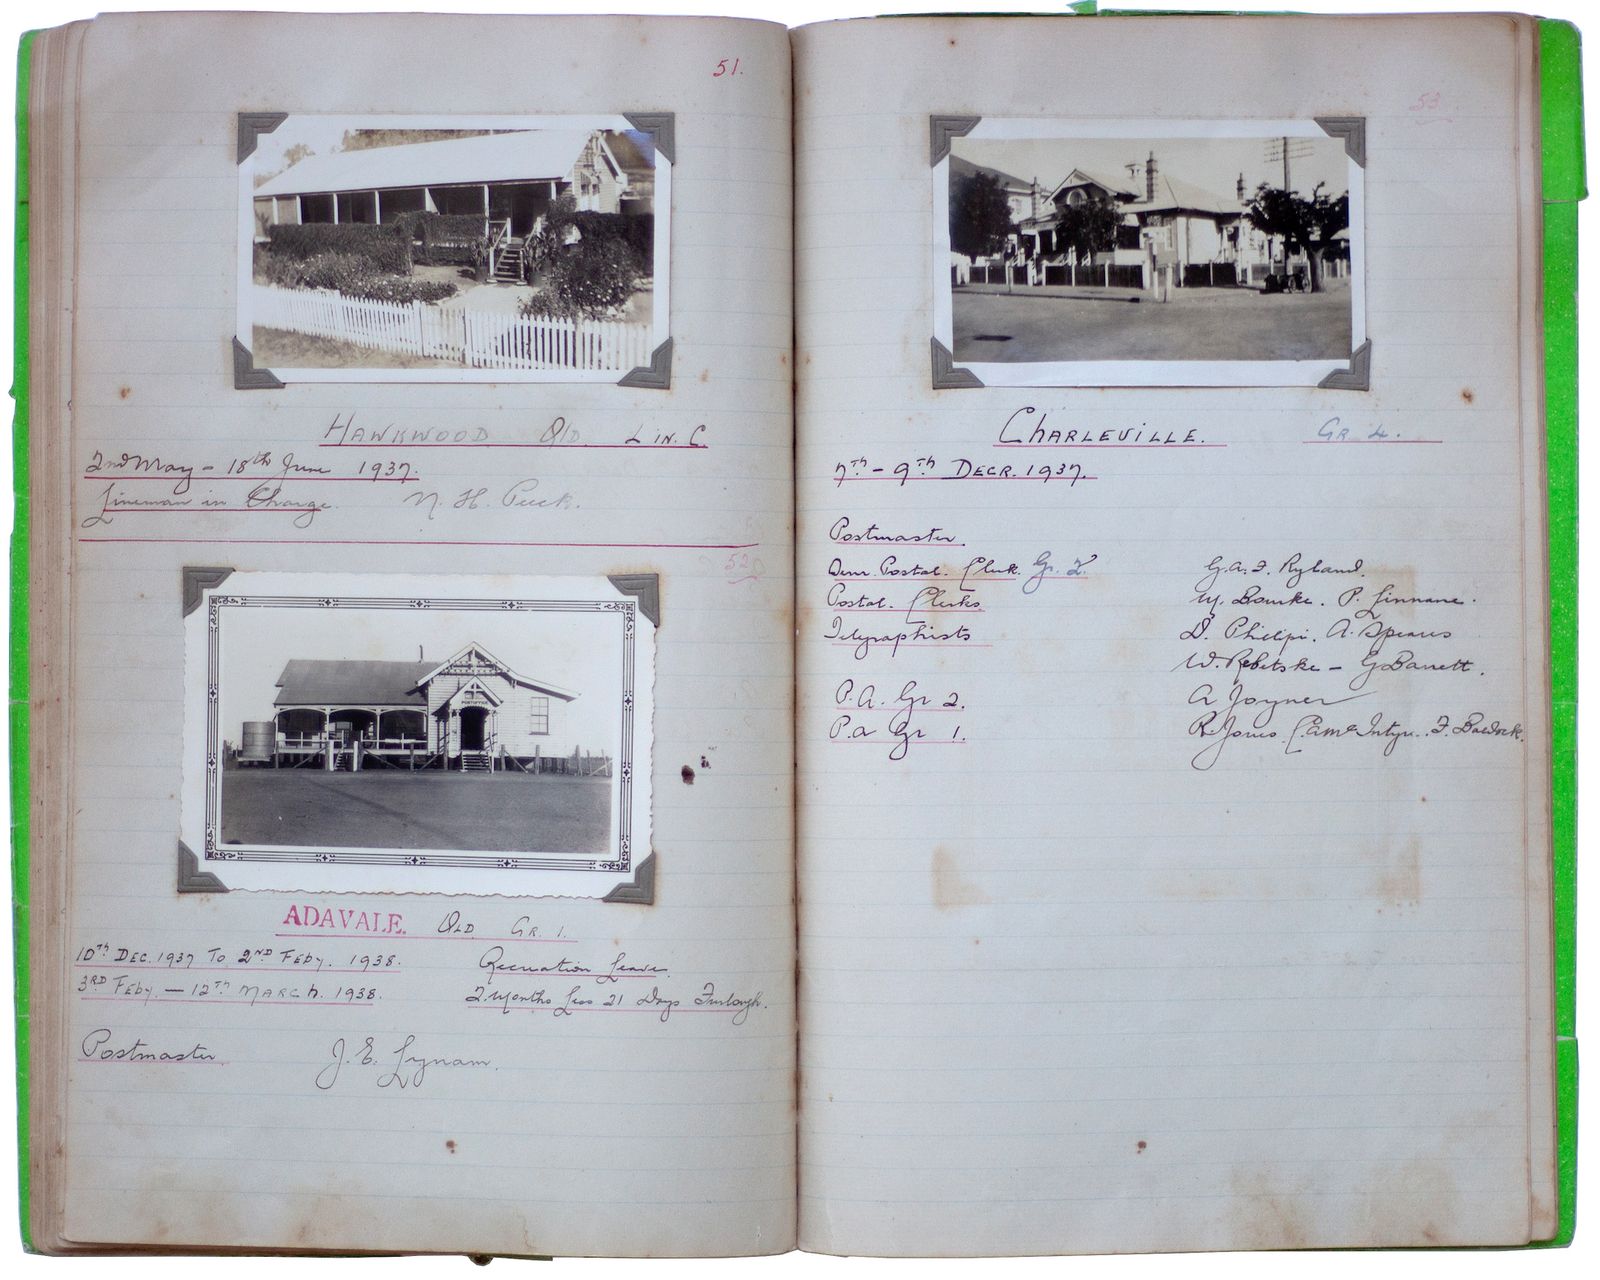 51.
HAWKWOOD Qld. LIN. C.
2nd May - 18th June 1937.
Lineman in Charge. N. H. Puck.
52
POST OFFICE
ADAVALE. QLD GR. 1.
10TH DEC. 1937 TO 2ND FEBY. 1938. Recreation Leave.
3RD FEBY. - 12TH MARCH. 1938. 2 Months less 21 Days Furlough.
Postmaster J. E. Lynam.
53
CHARLEVILLE. GR 4.
7TH - 9TH DECR. 1937.
Postmaster.
Senr. Postal. Clerk. Gr. 2. G. A. F. Ryland.
Postal. Clerks M. Bourke. P. Linnane.
Telegraphists D. Philipi. A. Spears
W. Rebetske - G Barrett.
P. A. Gr 2. A Joyner
P. a Gr 1. R. Jones C. a Mc Intyre. F. Baldock.